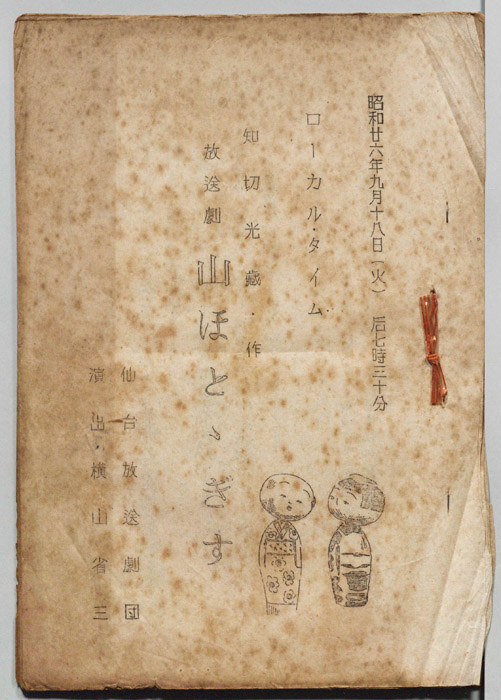 昭和廿六年九月十八日(火) 后七時三十分
ローカル・タイム
知切光蔵・作
放送劇 山ほとゝぎす
仙台放送劇団
演出・横山省三